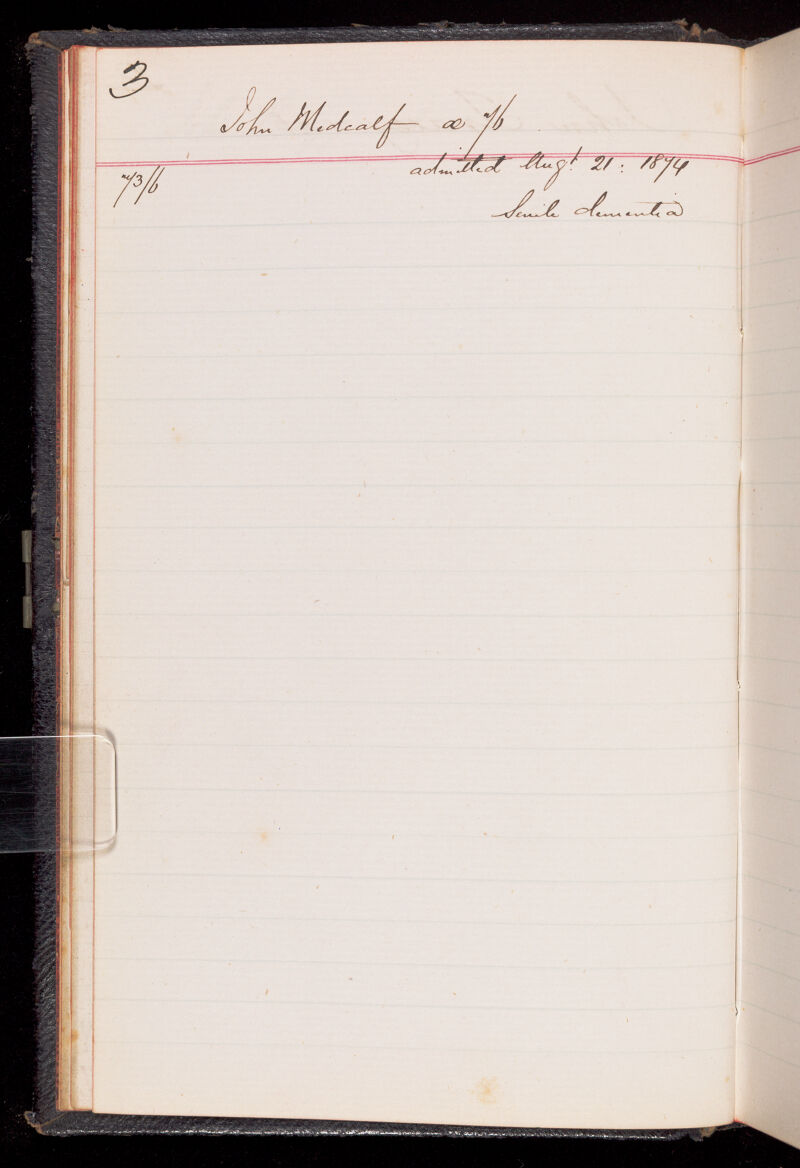 3
John Medcalf æ
admitted Augt. 21: 1874
Senile dementia